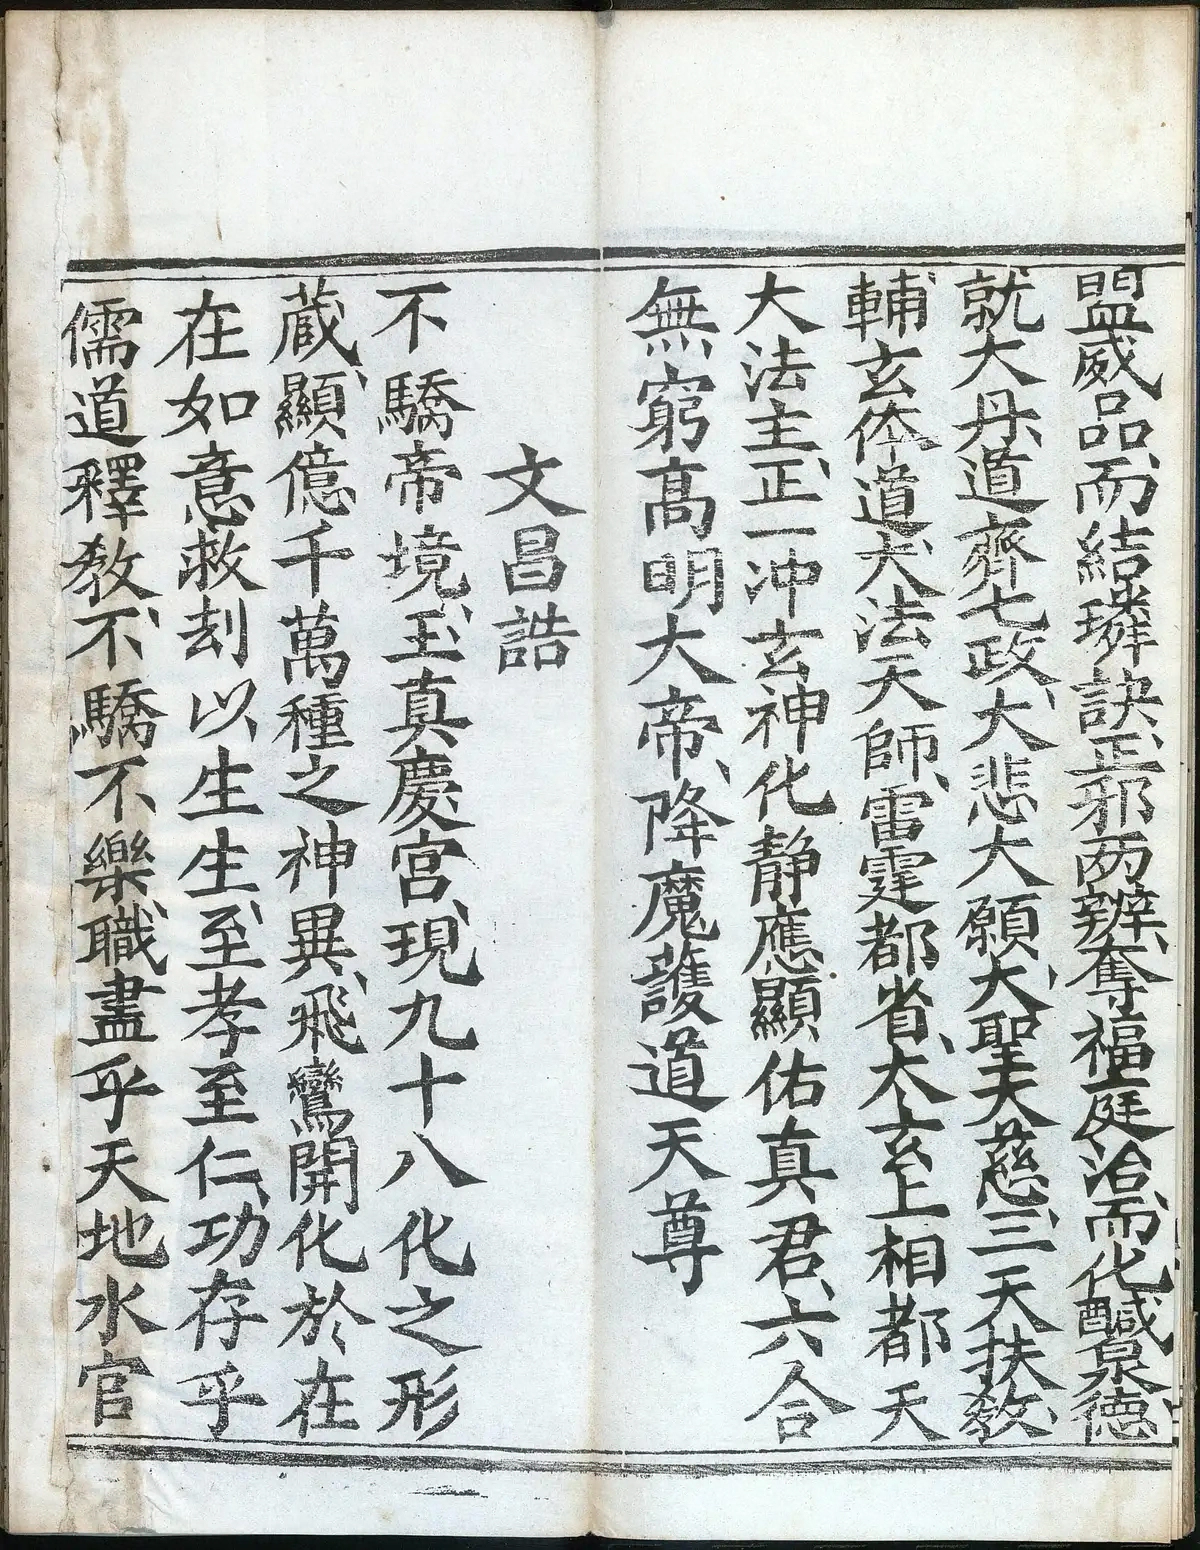 盟威品、而結璘訣、正邪两辦、奪福庭治、而化鹹泉德、
就大丹、道齊七政、大悲大願、大聖大慈、三天扶教、
輔玄体道、大法天師、雷霆都省、太玄上相、都天
大法主、正一冲玄神化静應顯佑真君、六合
無窮高明大帝、降魔護道天尊
文昌誥
不驕帝境、玉真慶宮、現九十八化之形
蔵、顯億千萬種之神異、飛鸞開化於在
在如意救刦以生生、至孝至仁、功存乎
儒道釋教、不驕不樂、職盡乎天地水官